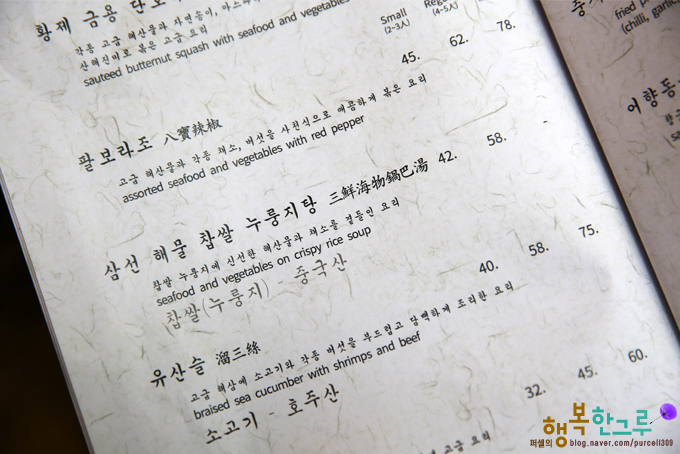 황제 금융 단호
각종 고급 해산물과 자연송이, 아스
산해진미로 볶은 고급 요리
sauteed butternut squash with seafood and vegetables
Small
(2~3人)
(4~5人)
45. 62. 78.
팔보라조 八寶辣椒
고급 해산물과 각종 채소, 버섯을 사천식으로 매콤하게 볶은 요리
assorted seafood and vegetables with red pepper
42. 58. -
삼선 해물 찹쌀 누룽지탕 三鮮海物鍋巴湯
찹쌀 누룽지에 신선한 해산물과 채소를 곁들인 요리
seafood and vegetables on crispy rice soup
찹쌀(누룽지) - 중국산
40. 58. 75.
유산슬 溜三絲
고급 해삼에 소고기와 각종 버섯을 부드럽고 담백하게 조리한 요리
braised sea cucumber with shrimps and beef
소고기 - 호주산
32. 45. 60.
고급 요리
fried
(chilli, garlic
어향동
행복한그루
퍼셀의 blog.naver.com/purcell309